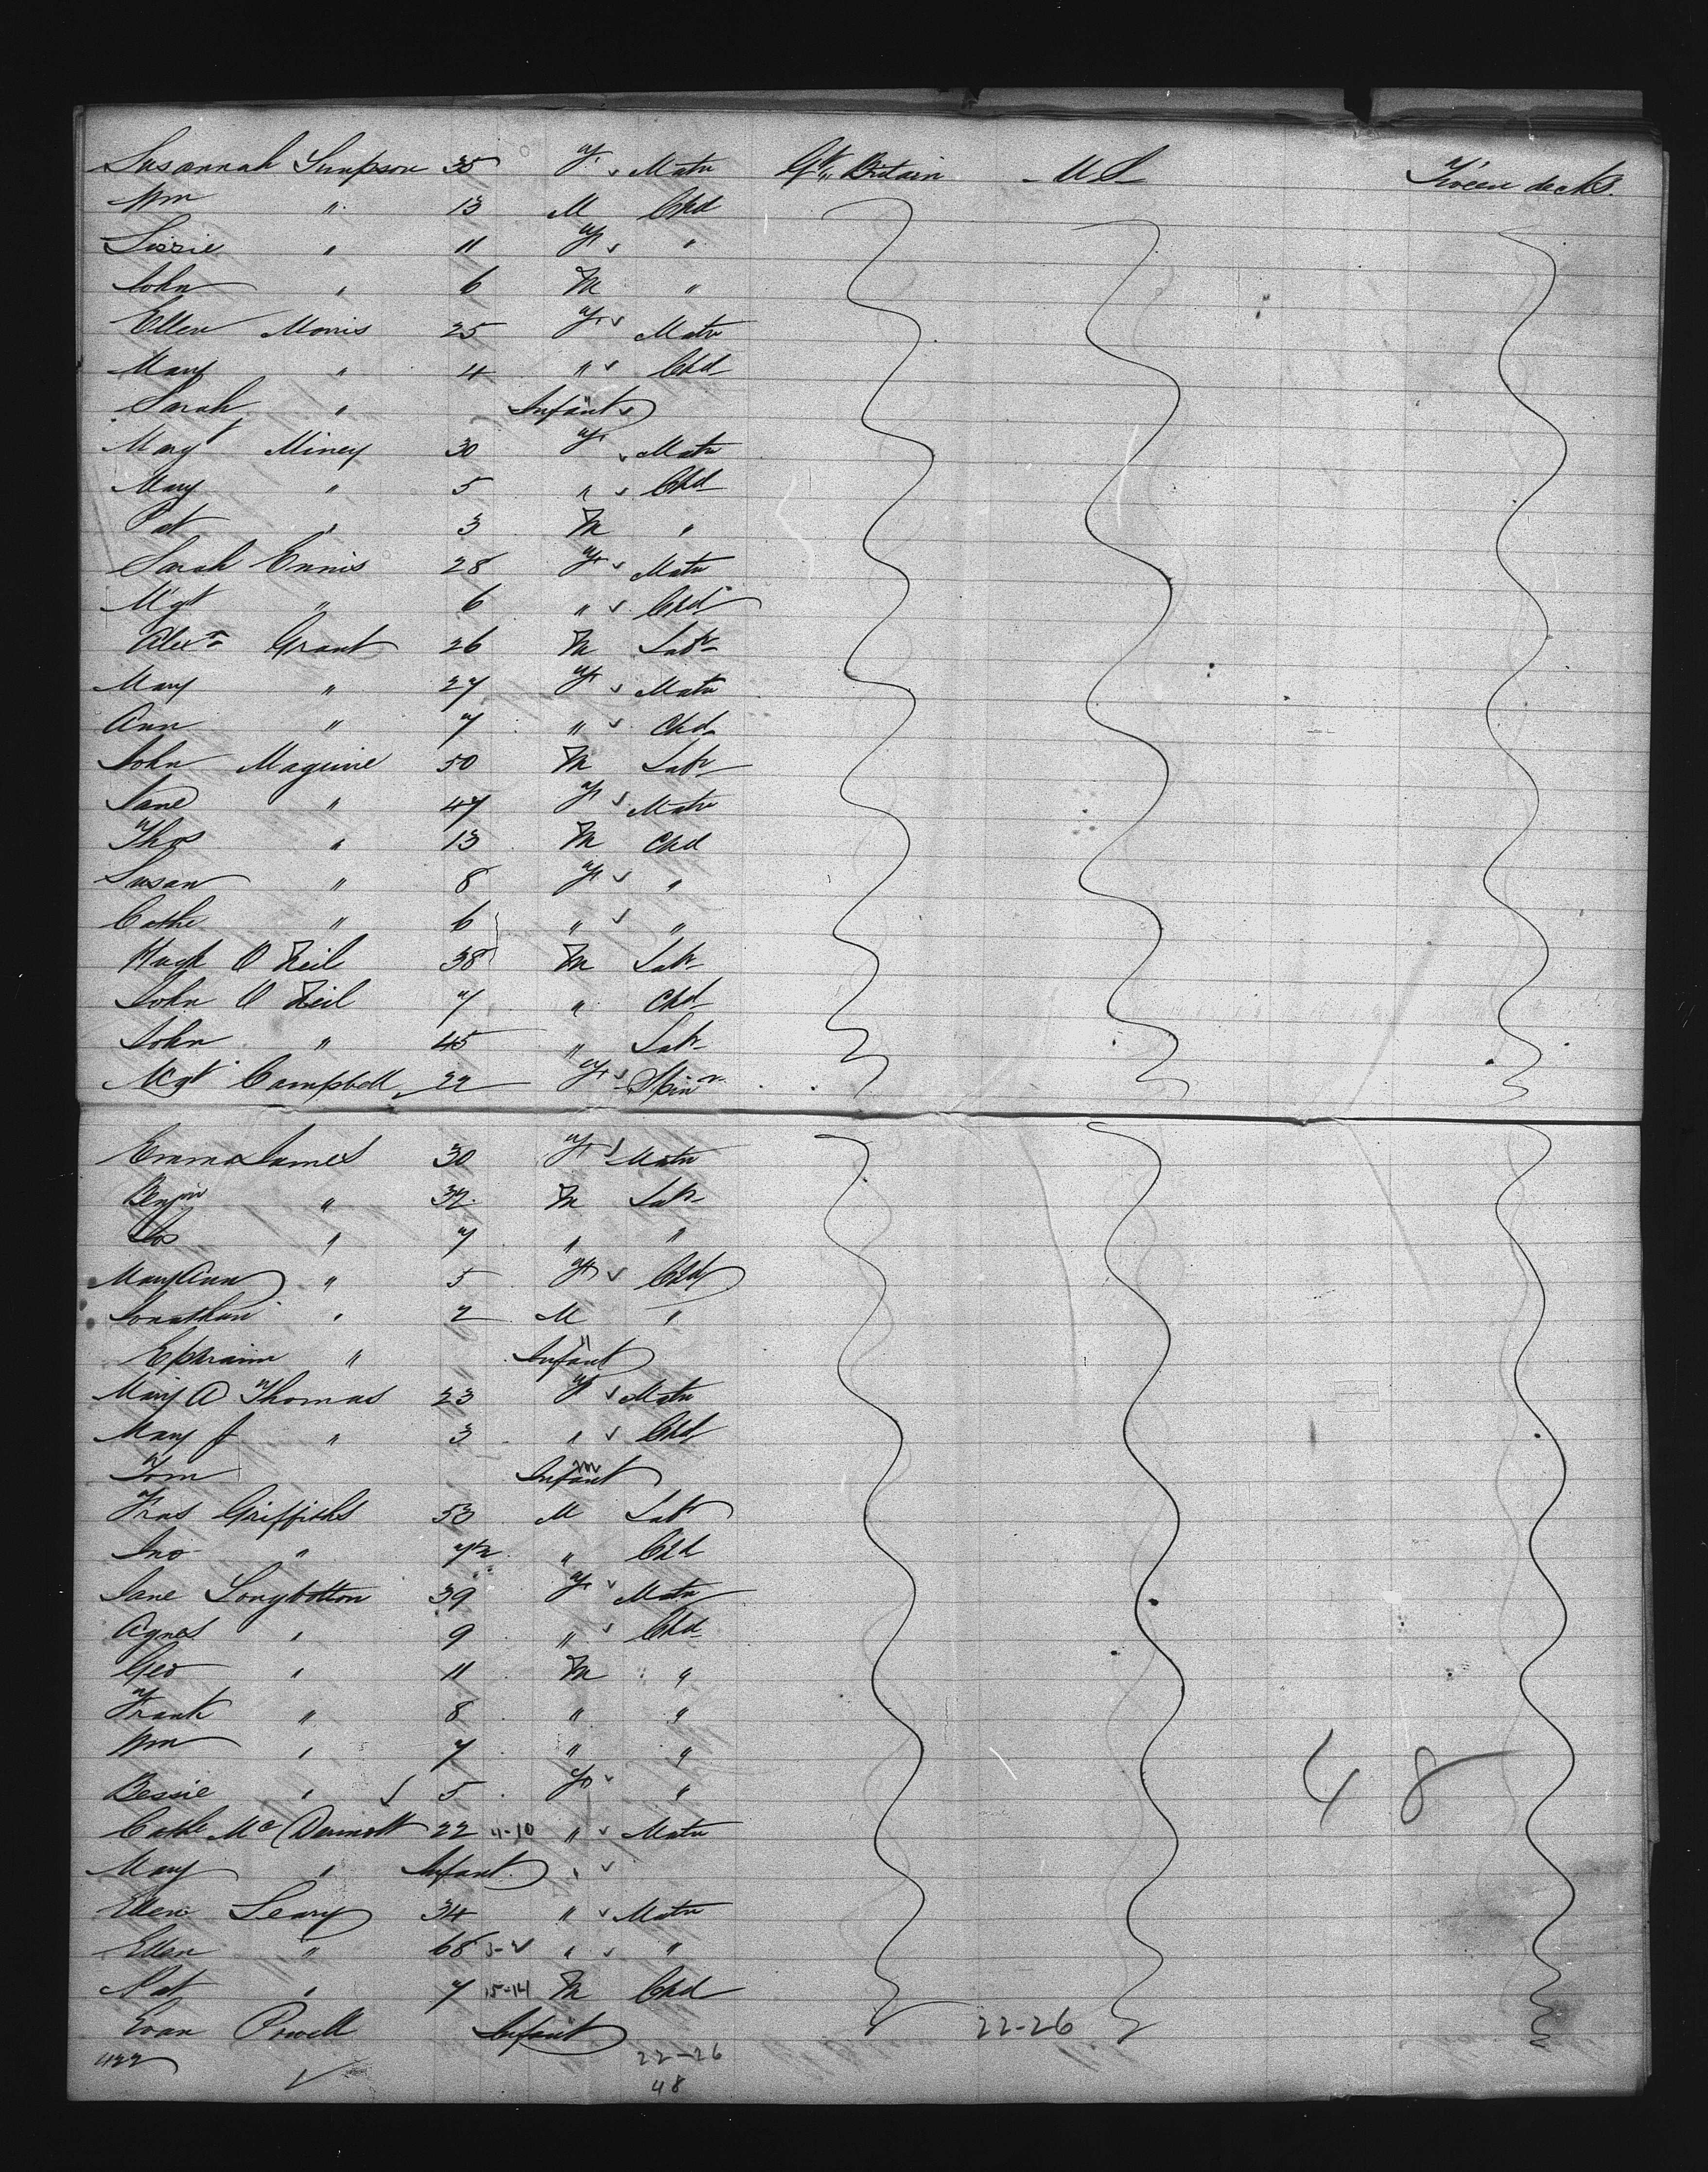 Susannah Simpson 35 F Matn Gt. Britain U S 'Tween decks.
Wm " 13 M Chd
Lizzie " 11 F "
John " 6 M "
Ellen Morris 25 F Matn
Mary " 4 " Chd
Sarah " Infant
Margt Miney 30 F Matn
Mary " 5 " Chd
Pat " 3 M "
Sarah Ennis 28 F Matn
Mgt " 6 " Chd
Alexr Grant 26 M Labr
Mary " 27 F Matn
Ann " 7 " Chd
John Maguire 50 M Labr
Jane " 47 F Matn
Thos " 13 M Chd
Susan " 8 F "
Cathe " 6 " "
Hugh O Neil 38 M Labr
John O Neil 7 " Chd
John " 45 " Labr
Mgt Campbell 22 F Spinr
Emma James 30 F Matn
Benjm " 32 M Labr
Jos " 7 " "
Mary Ann " 5 F Chd
Jonathan " 2 M "
Ephraim " Infant
Mary A Thomas 23 F Matn
Mary J " 3 " Chd
Tom Infant m
Fras Griffiths 53 M Labr
Jno " " Chd
Jane Longbotton 39 F Matn
Agnes " 9 " Chd
Geo " 11 M "
Frank " 8 " "
Wm " 7 " "
Bessie " 5 F "
Cathe McDermott 22 4-10 " Matn
Mary " Infant "
Ellen Leary 34 " Matn
Ellen " 68 3-2 " "
Pat " 7 15-14 M Chd
Evan Powell Infant 22-26
422 22-26
48
48